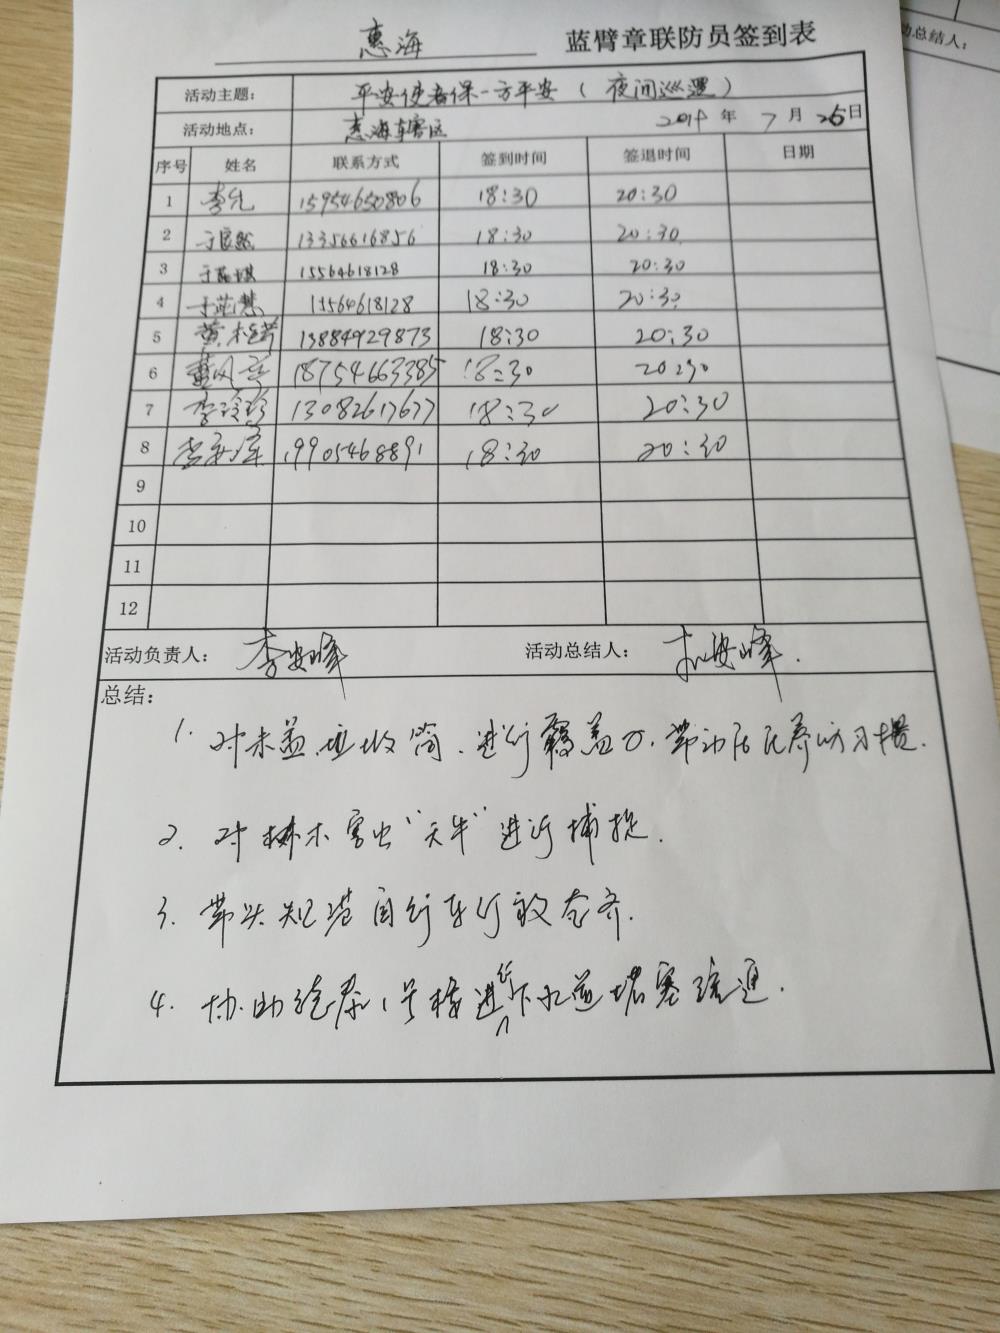 惠海 蓝臂章联防员签到表
活动主题： 平安使者保一方平安（夜间巡逻）
活动地点： 惠海辖区 2019 年 7 月 26 日
序号 姓名 联系方式 签到时间 签退时间 日期
1 李先 15954650806 18:30 20:30
2 于良然 13356616856 18:30 20:30
3 15564618128 18:30 20:30
4 于芷慧 15564618128 18:30 20:30
5 黄桂芳 13884929873 18:30 20:30
6 董风兰 18754663385 18:30 20:30
7 李玲珍 13082617677 18:30 20:30
8 19905468891 18:30 20:30
9
10
11
12
活动负责人： 李安峰 活动总结人： 李安峰
总结：
1. 对未盖垃圾筒，进行覆盖，带动居民养成习惯.
2. 对树木害虫“天牛”进行捕捉.
3. 带头规范自行车行放整齐.
4. 协助 1号楼进行下水道堵塞疏通.
动总结人：